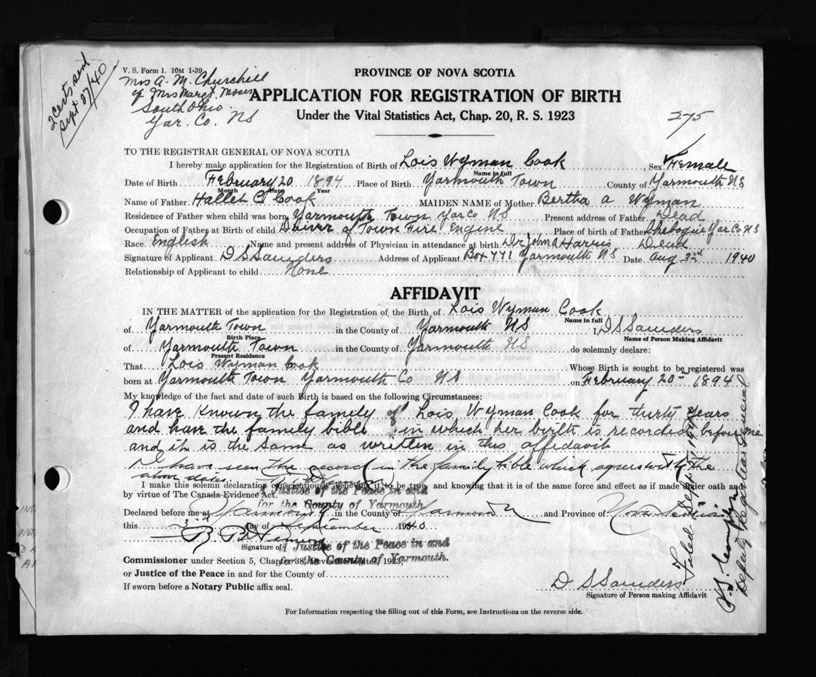 2 Certs sent
Sept 27/40
V. S. Form 1. 10M 1-39
Mrs A. M. Churchill
% Mrs Margt Moses
South Ohio.
Yar. Co. NS
PROVINCE OF NOVA SCOTIA
APPLICATION FOR REGISTRATION OF BIRTH
Under the Vital Statistics Act, Chap. 20, R. S. 1923
275
TO THE REGISTRAR GENERAL OF NOVA SCOTIA
I hereby make application for the Registration of Birth of Lois Wyman Cook Sex Female
Name in full
Date of Birth February 20 1894 Place of Birth Yarmouth Town County of Yarmouth NS
Month Date Year
Name of Father Hallet C Cook MAIDEN NAME of Mother Bertha A Wyman
Residence of Father when child was born Yarmouth Town Yar Co NS Present address of Father Dead
Occupation of Father at Birth of Child Driver of Town Fire Engine Place of Birth of Father Chebogue Yar Co NS
Race English Name and present address of Physician in attendance at birth Dr John A Harris Dead
Signature of Applicant D S Saunders Address of Applicant Box 441 Yarmouth NS Date Aug 3rd 1940
Relationship of Applicant to child None
AFFIDAVIT
IN THE MATTER of the application for the Registration of the Birth of Lois Wyman Cook
Name in full
of Yarmouth Town in the County of Yarmouth NS I, D S Saunders
Birth Place Name of Person Making Affidavit
of Yarmouth Town in the County of Yarmouth NS do solemnly declare:
Present Residence
That Lois Wyman Cook Whose Birth is sought to be registered was
born at Yarmouth Town Yarmouth Co NS on February 20 1894
My knowledge of the fact and date of such Birth is based on the following Circumstances:
I have known the family of Lois Wyman Cook for thirty years
and have the family bible in which her birth is recorded before me
and it is the same as written in this affidavit
I have seen the record in the family bible which agrees with the
above dates
I make this solemn declaration conscientiously believing it to be true, and knowing that it is of the same force and effect as if made under oath and
by virtue of The Canada Evidence Act.
A Justice of the Peace in and
for the County of Yarmouth
Declared before me at Yarmouth in the County of Yarmouth and Province of Nova Scotia
this 3rd day of September 1940
Signature of
A Justice of the Peace in and
for the County of Yarmouth.
Commissioner under Section 5, Chapter 38, Revised Statutes 1923
or Justice of the Peace in and for the County of
If sworn before a Notary Public affix seal.
D S Saunders
Signature of Person making Affidavit
Filed Sept
Deputy Registrar General
For Information respecting the filling out of this Form, see Instructions on the reverse side.